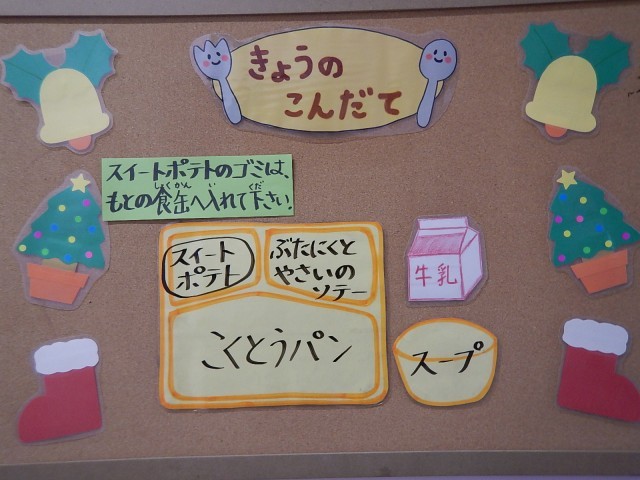 きょうの
こんだて
スイートポテトのゴミは、
もとの食缶へ入れて下さい。
しょくかん い くだ
スイート
ポテト
ぶたにくと
やさいの
ソテー
牛乳
こくとうパン
スープ